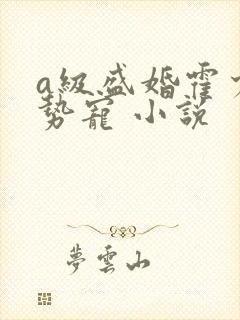 a級盛婚霍少
勢寵 小說
夢雲山